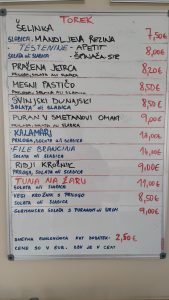 TOREK
ŠELINKA
SLADICA: MANDLJEVA REZINA 7,50€
- TESTENINE - APETIT 8,00€
SOLATA ALI SLADICA - ŠPINAČA, SIR
PRAŽENA JETRCA 8,20€
PRILOGA, SOLATA ALI SLADICA
MESNI PASTIČO 8,50€
SOLATA ALI SLADICA
SVINJSKI DUNAJSKI 8,50€
SOLATA ALI SLADICA
PURAN V SMETANOVI OMAKI 9,00€
PRILOGA, SOLATA ALI SLADICA
KALAMARI 13,00€
PRILOGA, SOLATA ALI SLADICA
FILE BRANCINA 14,10€
PRILOGA, SOLATA ALI SLADICA
RIBJI KROŽNIK 9,00€
PRILOGA, SOLATA ALI SLADICA
TUNA NA ŽARU 11,00€
SOLATA ALI SLADICA
VEGI KROŽNIK S PRILOGO 8,50€
SOLATA ALI SLADICA
ŠEFINSKA SOLATA S PURANOM IN SIROM 9,00€
DNEVNA ENOLONČNICA KOT DODATEK: 2,50€
CENE SO V EUR. DDV JE V CENI